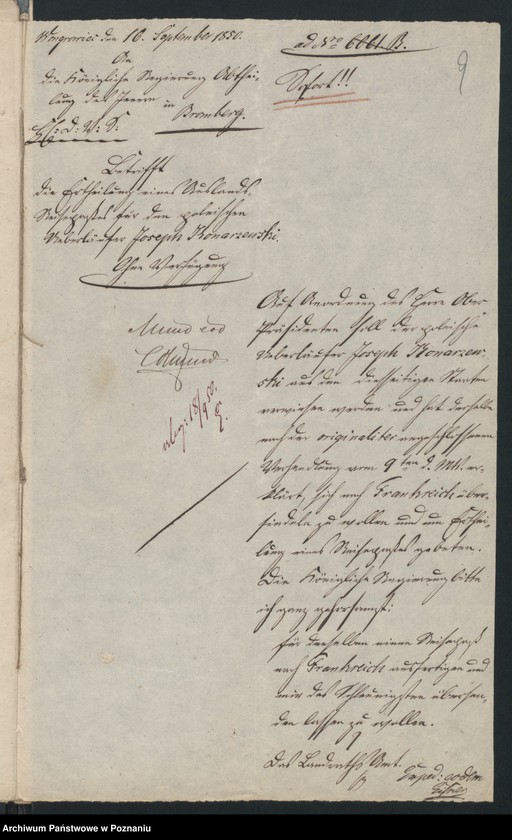 Wongrowiec den 16. September 1850.
An
die Königliche Regierung Abthei-
lung des Innern in
Bromberg.
ad Nro 6661. B.
Sofort!!
9
Betrifft
die Ertheilung eines Auslands-
Reisepaßes für den polnischen
Ueberläufer Joseph Konarzewski.
Ohne Verfügung
Auf Anordnung des Herrn Ober-
Präsidenten soll der polnische
Ueberläufer Joseph Konarzew-
ski aus den diesseitigen Staaten
verwiesen werden und hat derselbe
nach der originaliter angeschlossenen
Verhandlung vom 9ten d. Mts. er-
klärt, sich nach Frankreich über-
siedeln zu wollen und um Erthei-
lung eines Reisepaßes gebeten.
Die Königliche Regierung bitte
ich ganz gehorsamst:
für denselben einen Reisepaß
nach Frankreich ausfertigen und
mir des Schleunigsten übersen-
den lassen zu wollen.
Das Landraths Amt.
Mund eod
18/9 50.
Archiwum Państwowe w Poznaniu